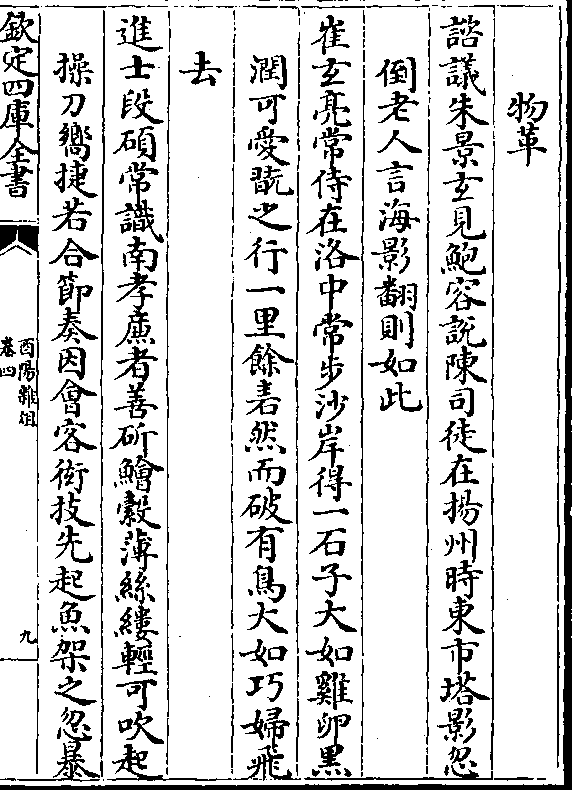 物革
諮議朱景玄見鮑容說陳司徒在揚州時東市塔影忽
倒老人言海影翻則如此
崔玄亮常侍在洛中常步沙岸得一石子大如雞卵黑
潤可愛翫之行一里餘砉然而破有鳥大如巧婦飛
去
進士段碩常識南孝廉者善斫鱠縠薄絲縷輕可吹起
操刀嚮捷若合節奏因會客衒技先起魚架之忽暴
欽定四庫全書
酉陽雜俎
卷四
九